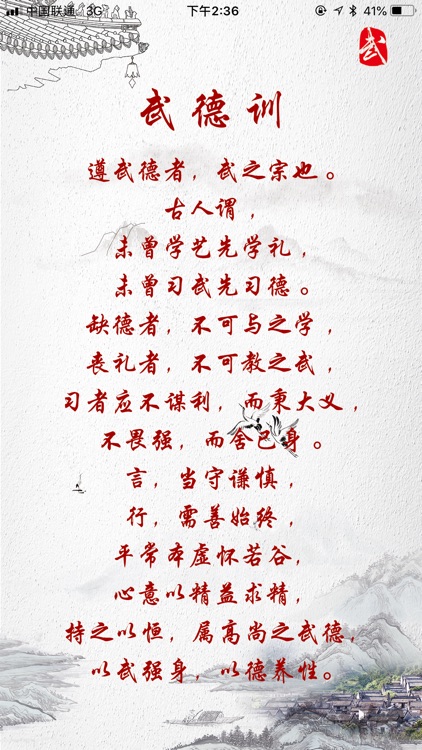 中国联通 3G 下午2:36 41%
武
武德训
遵武德者，武之宗也。
古人谓，
未曾学艺先学礼，
未曾习武先习德。
缺德者，不可与之学，
丧礼者，不可教之武，
习者应不谋利，而秉大义，
不畏强，而舍己身。
言，当守谦慎，
行，需善始终，
平常本虚怀若谷，
心意以精益求精，
持之以恒，属高尚之武德，
以武强身，以德养性。